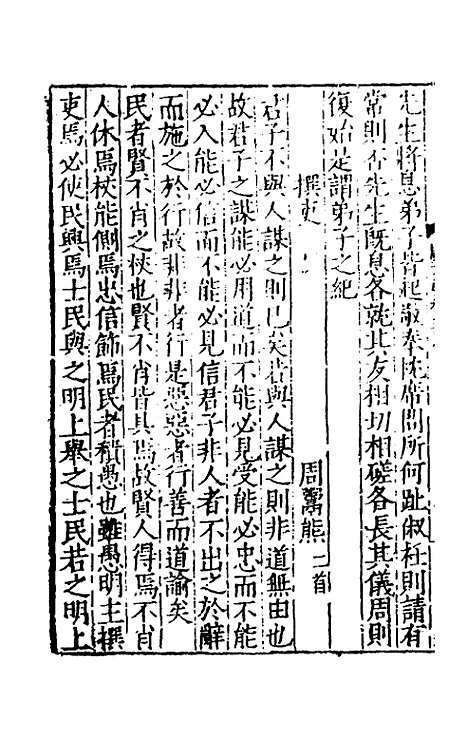 先生將息弟子皆起敬奉枕席問所何趾俶衽則請有
常則否先生既息各就其友相切相磋各長其儀周則
復始是謂弟子之紀
撰吏　周鬻熊二首
君子不與人謀之則已矣若與人謀之則非道無由也
故君子之謀能必用道而不能必見受能必忠而不能
必入能必信而不能必見信君子非人者不出之於辭
而施之於行故非非者行是惡惡者行善而道諭矣
民者賢不肖之杖也賢不肖皆具焉故賢人得焉不肖
人休焉杖能側焉忠信飾焉民者積愚也雖愚明主撰
吏焉必使民興焉士民與之明上舉之士民若之明上